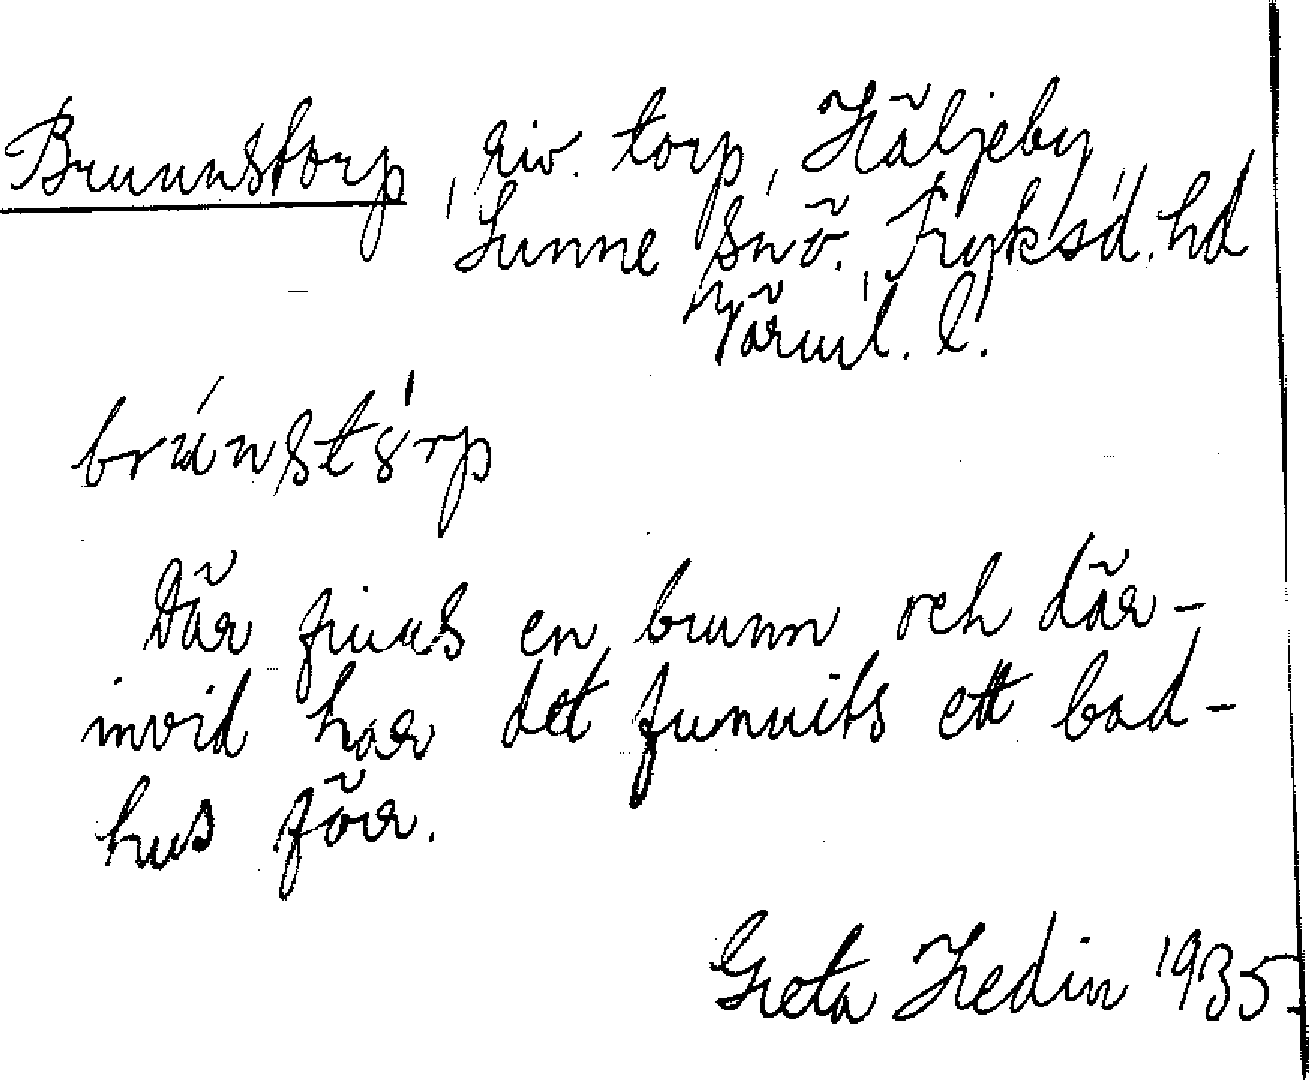 Brunnstorp, riv. torp, Häljeby,
Sunne sn ö. Fryksd. hd
Värml. l.
brúnstórp
Där finns en brunn och där-
invid har det funnits ett bad-
hus förr.
Greta Hedin 1935.